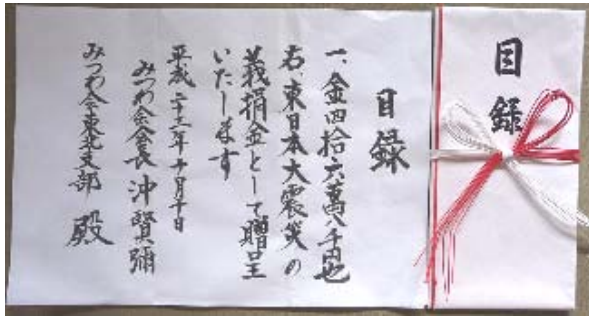 目録
目録
一、金四拾六萬八千円也
右、東日本大震災の
義捐金として贈呈
いたします
平成二十三年十月十日
みつわ会会長 沖賢彌
みつわ会東北支部 殿